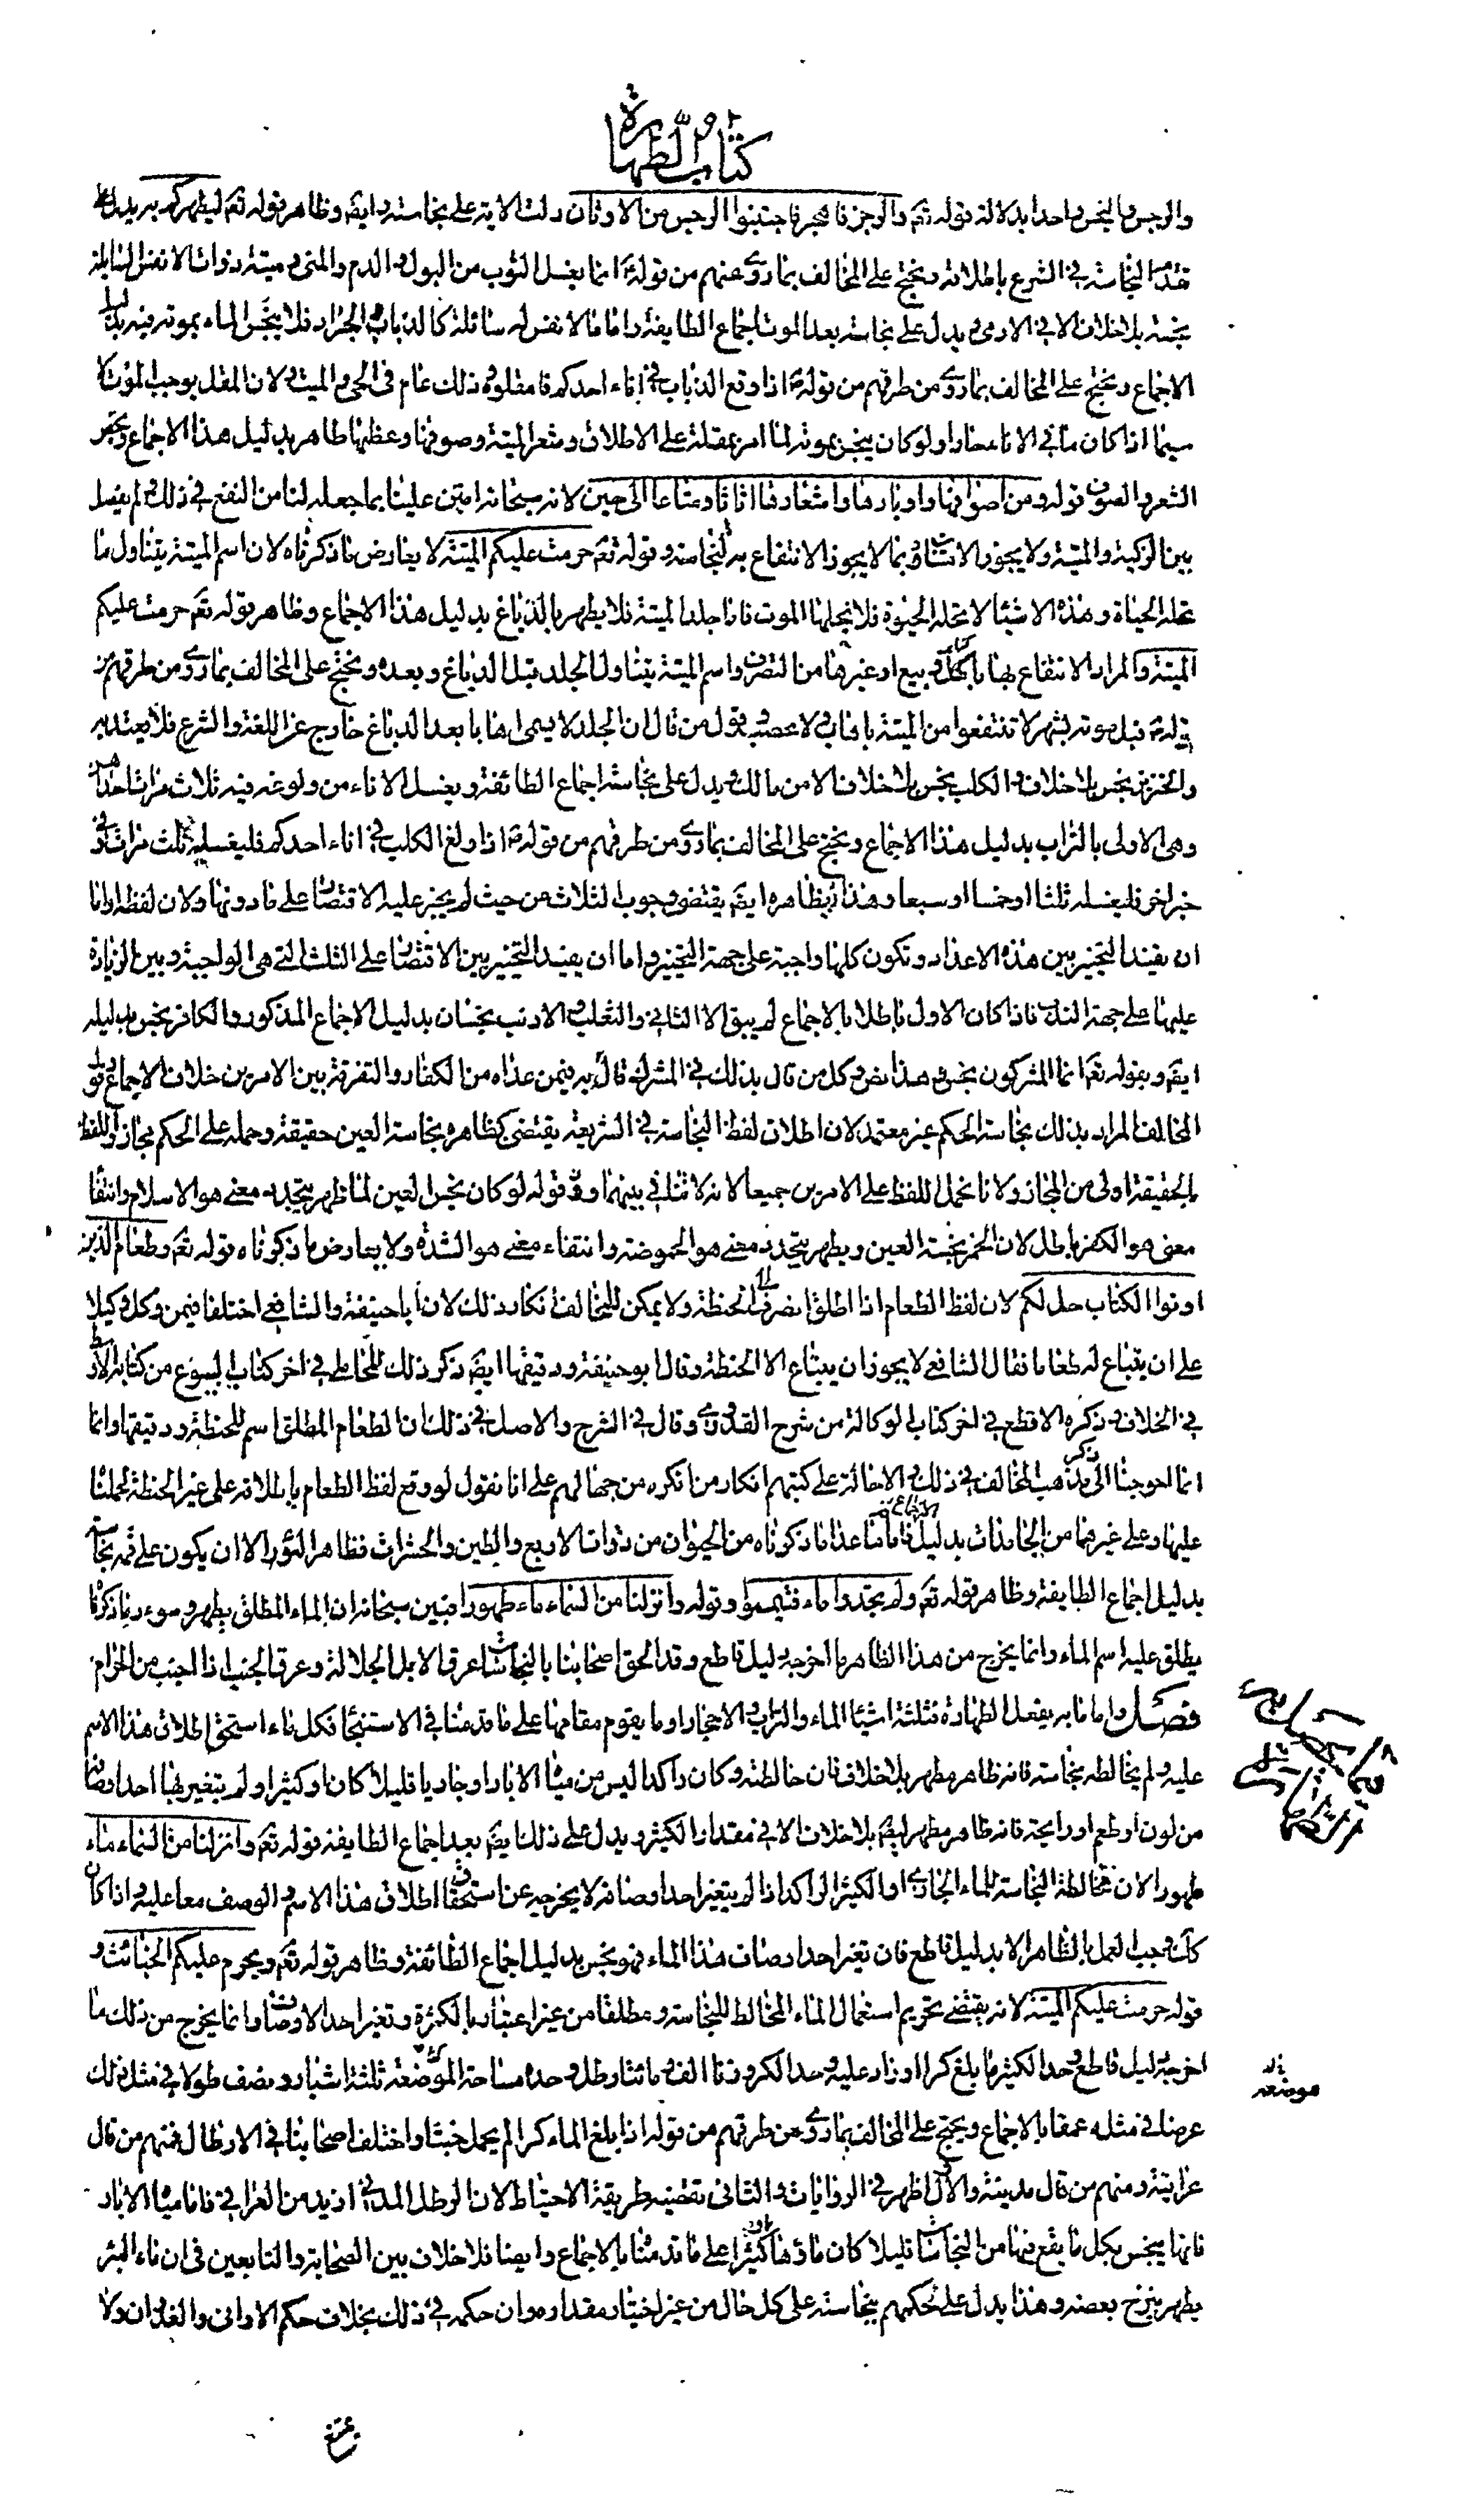 كتاب الطهارة
والرجس والنجس واحد بدلالة قوله تعٓ والرجز فاهجر فاجتنبوا الرجس من الاوثان دلت الاية على نجاسته وايضٓ وظاهر قوله تعٓ ليطهركم به يدل على
تقدم النجاسة في الشرع باطلاقه ونحتج على المخالف بما روي عنهم من قولهٓ انما يغسل الثوب من البول والدم والمني وميتة ذوات الانفس السايلة
نجسة بلا خلاف الا في الادمي ويدل على نجاسته بعد الموت اجماع الطايفة واما ما لا نفس له سائلة كالذباب والجراد فلا ينجس الماء بموته فيه بدليل
الاجماع ونحتج على المخالف بما روي من طرقهم من قولهٓ اذا وقع الذباب في اناء احدكم فامقلوه وذلك عام في الحي والميت ولان المقل يوجب الموت لا
سيما اذا كان ما في الاناء حارا ولو كان ينجس بموته لما امر بمقله على الاطلاق وشعر الميتة وصوفها وعظمها طاهر بدليل هذا الاجماع ويخص
الشعر والصوف قوله ومن اصوافها واوبارها واشعارها اثاثا ومتاعا الى حين لانه سبحانه امتن علينا بما جعله لنا من النفع في ذلك ولم يفصل
بين الزكية والميتة ولا يجوز الامتنان بما لا يجوز الانتفاع به لنجاسته وقوله تعٓ حرمت عليكم الميتة لا يعارض ما ذكرناه لان اسم الميتة يتناول ما
تحله الحياة وهذه الاشياء لا تحله الحيوة فلا يحلها الموت فاما جلد الميتة فلا يطهر بالدباغ بدليل هذا الاجماع وظاهر قوله تعٓ حرمت عليكم
الميتة والمراد الانتفاع بها باكل وبيع او غيرها من التصرف واسم الميتة يتناول الجلد قبل الدباغ وبعده ونحتج على المخالف بما روي من طرقهم من
قولهٓ قبل موته بشهر لا تنتفعوا من الميتة باهاب ولا عصب وقول من قال ان الجلد لا يسمى اهابا بعد الدباغ خارج عن اللغة والشرع فلا يعتد به
والخنزير نجس بلا خلاف والكلب نجس بلا خلاف الا من مالك ويدل على نجاسته اجماع الطائفة ويغسل الاناء من ولوغه فيه ثلاث مرات احداهن
وهي الاولى بالتراب بدليل هذا الاجماع ونحتج على المخالف بما روي من طرقهم من قولهٓ اذا ولغ الكلب في اناء احدكم فليغسله ثلث مرات وفي
خبر اخر فليغسله ثلثا او خمسا او سبعا وهذا بظاهره ايضٓ يقتضي وجوب الثلاث من حيث لم يجز عليه الاقتصار على ما دونها ولان لفظة او اما
ان يفيد التخيير بين هذه الاعداد وتكون كلها واجبة على جهة التخيير واما ان يفيد التخيير بين الاقتصار على الثلث التي هي الواجبة وبين الزيادة
عليها على جهة الندب فاذا كان الاول باطلا بالاجماع لم يبق الا الثاني والثعلب والارنب نجسان بدليل الاجماع المذكور والكافر نجس بدليله
ايضٓ وبقوله تعٓ انما المشركون نجس وهذا نص وكل من قال بذلك في المشرك قال به فيمن عداه من الكفار والتفرقة بين الامرين خلاف الاجماع وقول
المخالف المراد بذلك نجاسة الحكم غير معتمد لان اطلاق لفظ النجاسة في الشريعة يقتضي بظاهره نجاسة العين حقيقة وحمله على الحكم مجاز واللفظ
بالحقيقة اولى من المجاز ولانا نحمل اللفظ على الامرين جميعا لانه لا تنافي بينهما وقوله لو كان نجس العين لما طهر بتجدد معنى هو الاسلام وانتفاء
معنى هو الكفر باطل لان الخمر نجسة العين ويطهر بتجدد معنى هو الحموضة وانتفاء معنى هو الشدة ولا يعارض ما ذكرناه قوله تعٓ وطعام الذين
اوتوا الكتاب حل لكم لان لفظ الطعام اذا اطلق انصرف الى الحنطة ولا يمكن للمخالف انكار ذلك لان ابا حنيفة والشافعي اختلفا فيمن وكل وكيلا
على ان يبتاع له طعاما فقال الشافعي لا يجوز ان يبتاع الا الحنطة وقال ابو حنيفة ودقيقها ايضٓ ذكر ذلك المحاملي في اخر كتاب البيوع من كتابه الاوسط
في الخلاف وذكره الاقطع في اخر كتاب الوكالة من شرح القدوري وقال في الشرح والاصل في ذلك ان الطعام المطلق اسم للحنطة ودقيقها وانما
انما احوجنا الى ذكر مذهب المخالف في ذلك والاحالة على كتبهم انكار من انكره من جهالهم على انا نقول لو وقع لفظ الطعام باطلاقه على غير الحنطة لحملنا
عليها وعلى غيرها من الجامدات بدليل الاجماع فاما ما عدا ما ذكرناه من الحيوان من ذوات الاربع والطير والحشرات فطاهر السؤر الا ان يكون على فمه نجاسة
بدليل اجماع الطايفة وظاهر قوله تعٓ ولم يجدوا ماء فتيمموا وقوله وانزلنا من السماء ماء طهورا فبين سبحانه ان الماء المطلق يطهر وسوءر ما ذكرنا
يطلق عليه اسم الماء وانما يخرج من هذا الظاهر ما اخرجه دليل قاطع وقد الحق اصحابنا بالنجاسات عرق الابل الجلالة وعرق الجنب اذا اجنب من الحرام
فصل واما ما به يفعل الطهارة فثلثة اشياء الماء والتراب والاحجار او ما يقوم مقامها على ما قدمنا في الاستنجاء فكل ماء استحق اطلاق هذا الاسم
عليه ولم يخالطه نجاسة فانه طاهر مطهر بلا خلاف فان خالطته وكان راكدا ليس من مياه الابار او جاريا قليلا كان او كثيرا ولم يتغير بها احد اوصافه
من لون او طعم او رايحة فانه طاهر مطهر ايضٓ بلا خلاف الا في مقدار الكثير ويدل على ذلك ايضٓ بعد اجماع الطايفة قوله تعٓ وانزلنا من السماء ماء
طهورا لان مخالطة النجاسة للماء الجاري او الكثير الراكد اذا لم يتغير احد اوصافه لا يخرجه عن استحقاق اطلاق هذا الاسم والوصف معا عليه واذا كان
كك وجب العمل بالظاهر الا بدليل قاطع فان تغير احد اوصاف هذا الماء فهو نجس بدليل اجماع الطائفة وظاهر قوله تعٓ ويحرم عليكم الخبائث و
قوله حرمت عليكم الميتة لانه يقتضي تحريم استعمال الماء المخالط للنجاسة ومطلقا من غير اعتبار بالكثرة وتغير احد الاوصاف وانما يخرج من ذلك ما
اخرجه دليل قاطع وحد الكثير ما بلغ كرا او زاد عليه وحد الكر وزنا الف وماتا رطل وحده مساحة الموضعه ثلثة اشبار ونصف طولا في مثل ذلك
موضعه
عرضا في مثله عمقا بالاجماع ونحتج على المخالف بما روي من طرقهم من قوله اذا بلغ الماء كرا لم يحمل خبثا واختلف اصحابنا في الارطال فمنهم من قال
عراقية ومنهم من قال مدينة والاول اظهر في الروايات والثاني تقتضيه طريقة الاحتياط لان الرطل المدني ازيد من العراقي فاما مياه الابار
فانها ينجس بكل ما يقع فيها من النجاسات قليلا كان ماؤها او كثيرا على ما قدمنا بالاجماع وايضا فلا خلاف بين الصحابة والتابعين في ان ماء البئر
يطهر بنزح بعضه وهذا يدل على حكمهم بنجاسته على كل حال من غير اختيار مقداره وان حكمه في ذلك بخلاف حكم الاواني والغدران ولا